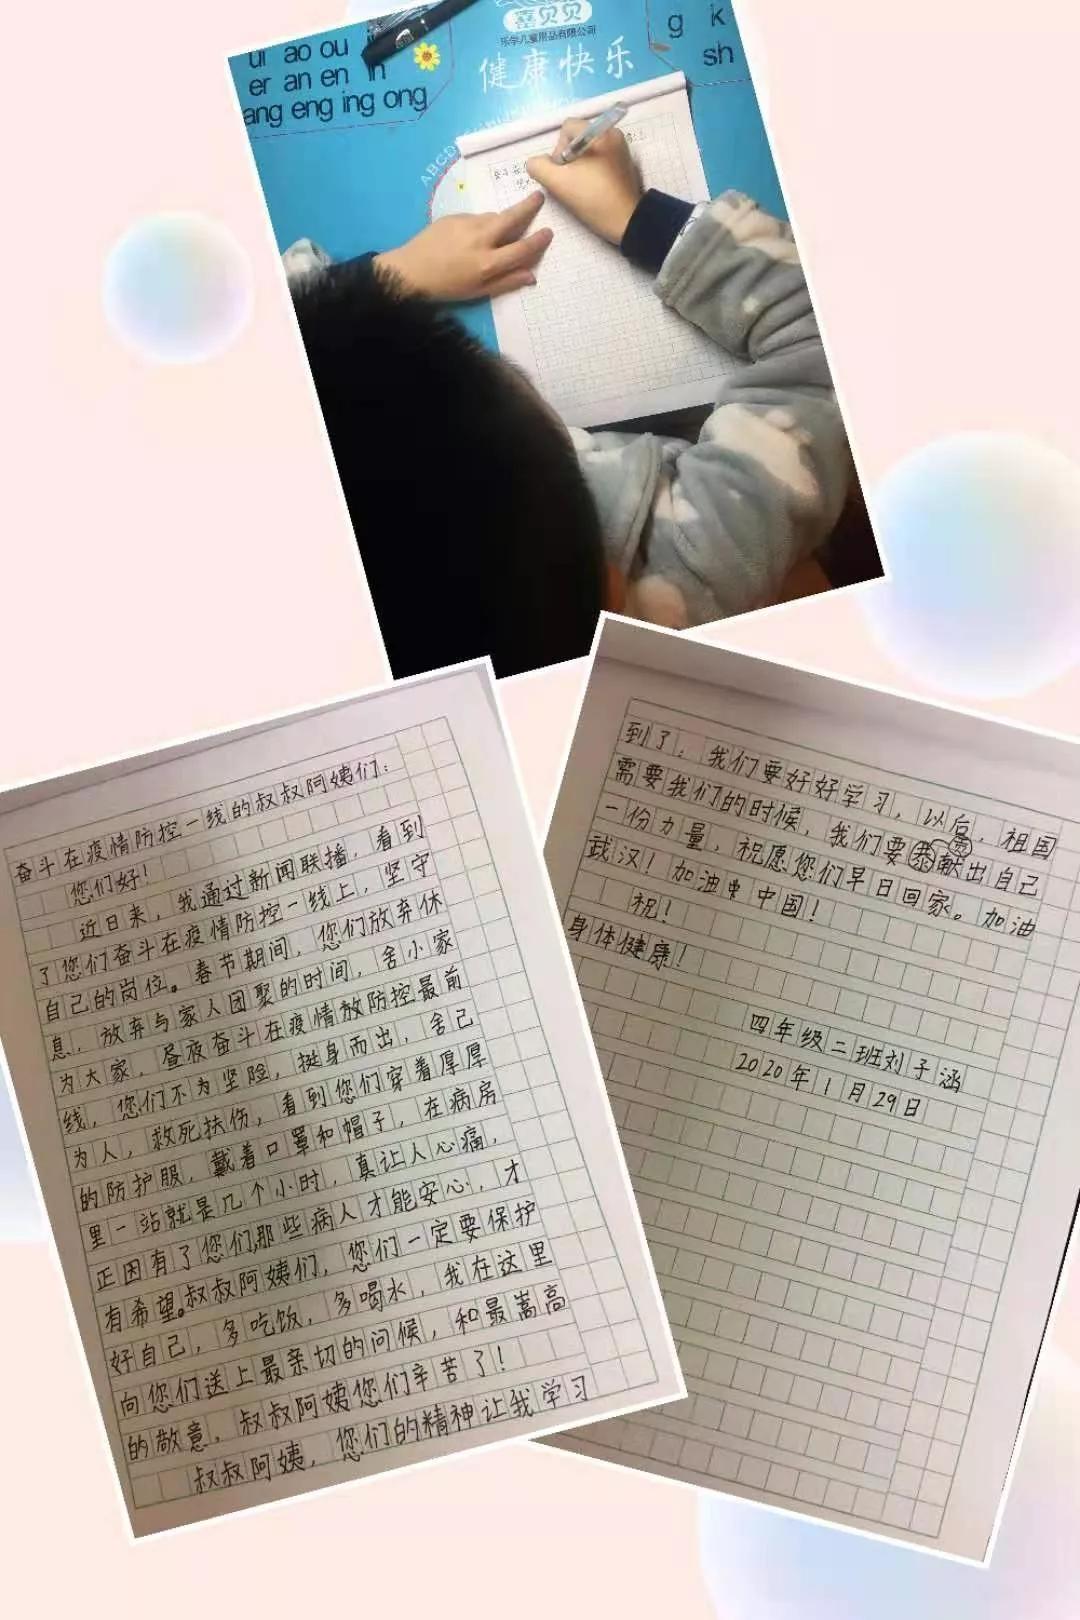 ui ao ou
er an en in
ang eng ing ong
喜贝贝
乐学儿童用品有限公司
健康快乐
g k
sh
奋斗在疫情防控一线的叔叔阿姨们：
您们好！
近日来，我通过新闻联播，看到
了您们奋斗在疫情防控一线上，坚守
自己的岗位。春节期间，您们放弃休
息，放弃与家人团聚的时间，舍小家
为大家，昼夜奋斗在疫情放防控最前
线，您们不为坚险，挺身而出，舍己
为人，救死扶伤，看到您们穿着厚厚
的防护服，戴着口罩和帽子，在病房
里一站就是几个小时，真让人心痛，
正因有了您们，那些病人才能安心，才
有希望。叔叔阿姨们，您们一定要保护
好自己，多吃饭，多喝水，我在这里
向您们送上最亲切的问候，和最嵩高
的敬意，叔叔阿姨您们辛苦了！
叔叔阿姨，您们的精神让我学习
到了，我们要好好学习，以后，祖国
需要我们的时候，我们要献出自己
一份力量，祝愿您们早日回家。加油
武汉！加油中国！
祝！
身体健康！
四年级二班刘子涵
2020年1月29日